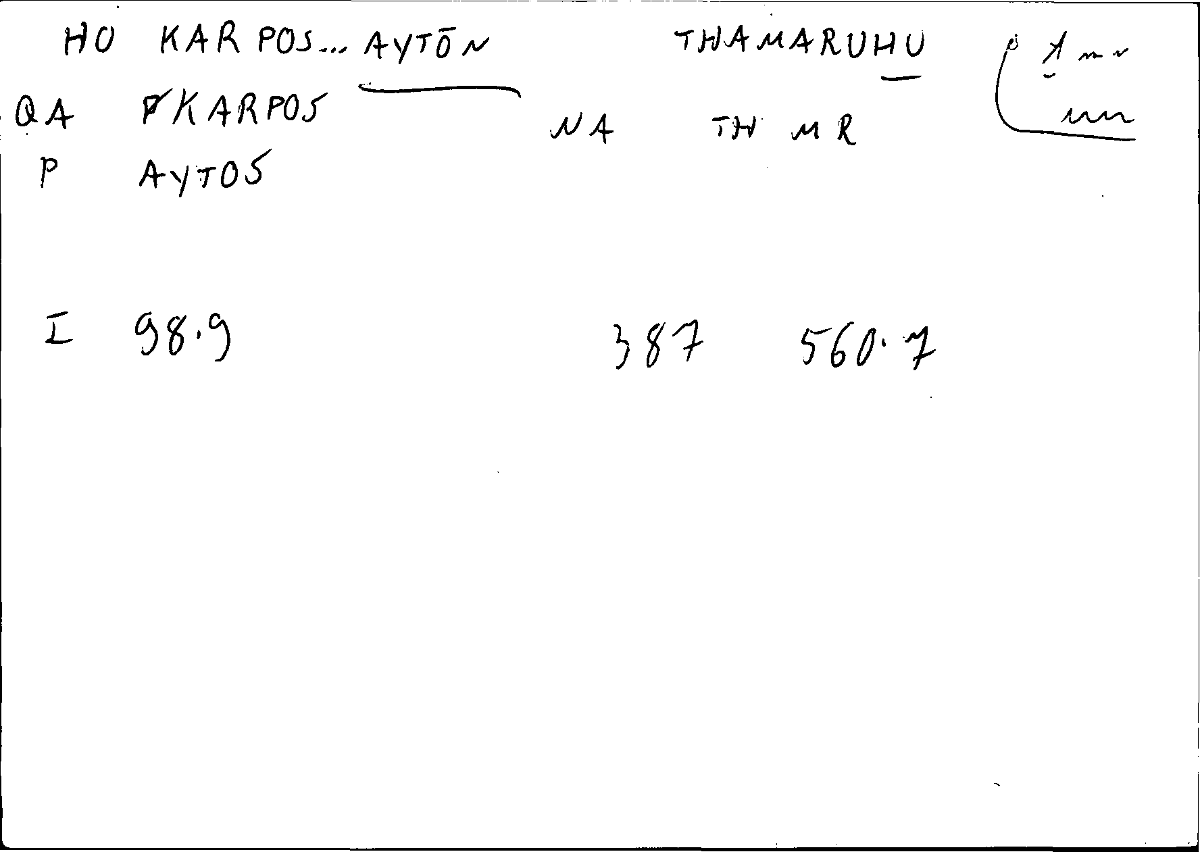 HO KARPOS... AYTŌN THAMARUHU
QA KARPOS NA TH MR
P AYTOS
I 98.9 387 560.7